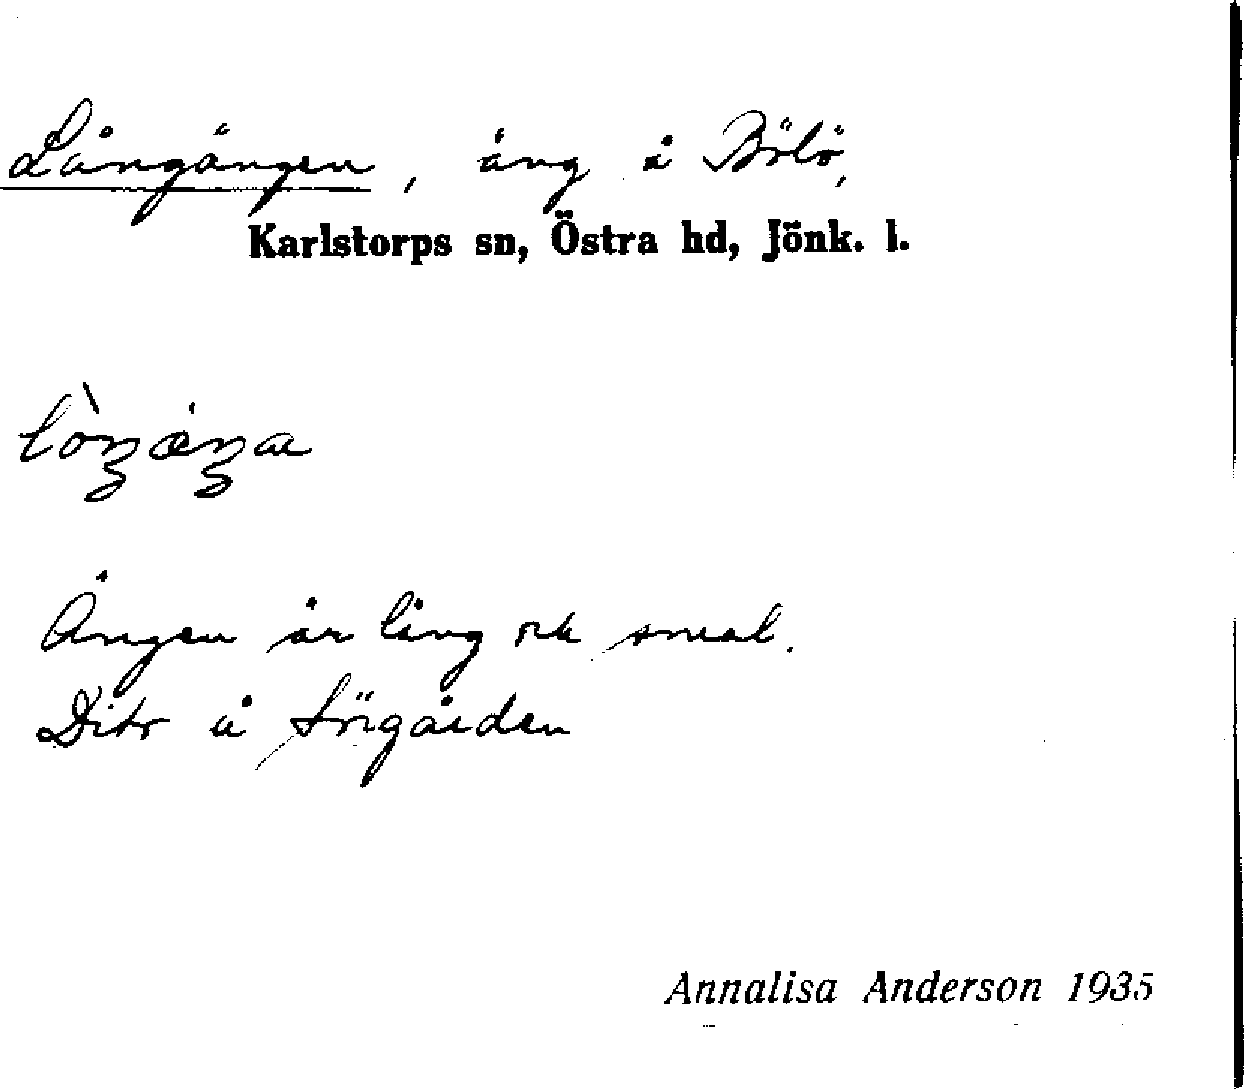 Långängen, äng å Bölö,
Karlstorps sn, Östra hd, Jönk. l.
lòŋæ̀ŋa
Ängen är lång och smal.
Dito å Sörgården
Annalisa Anderson 1935